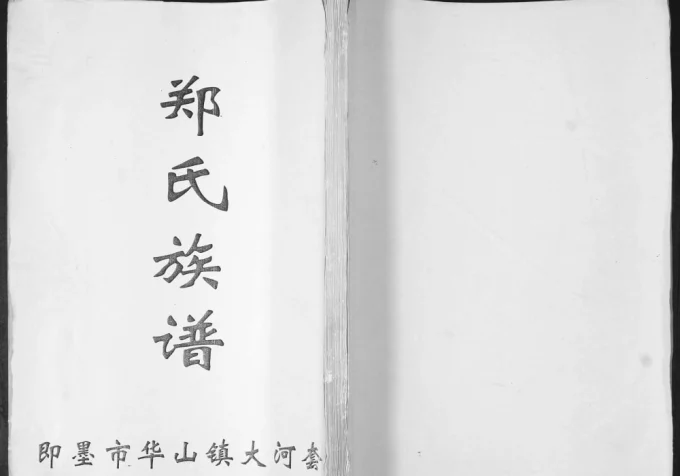 郑氏族谱
即墨市华山镇大河套